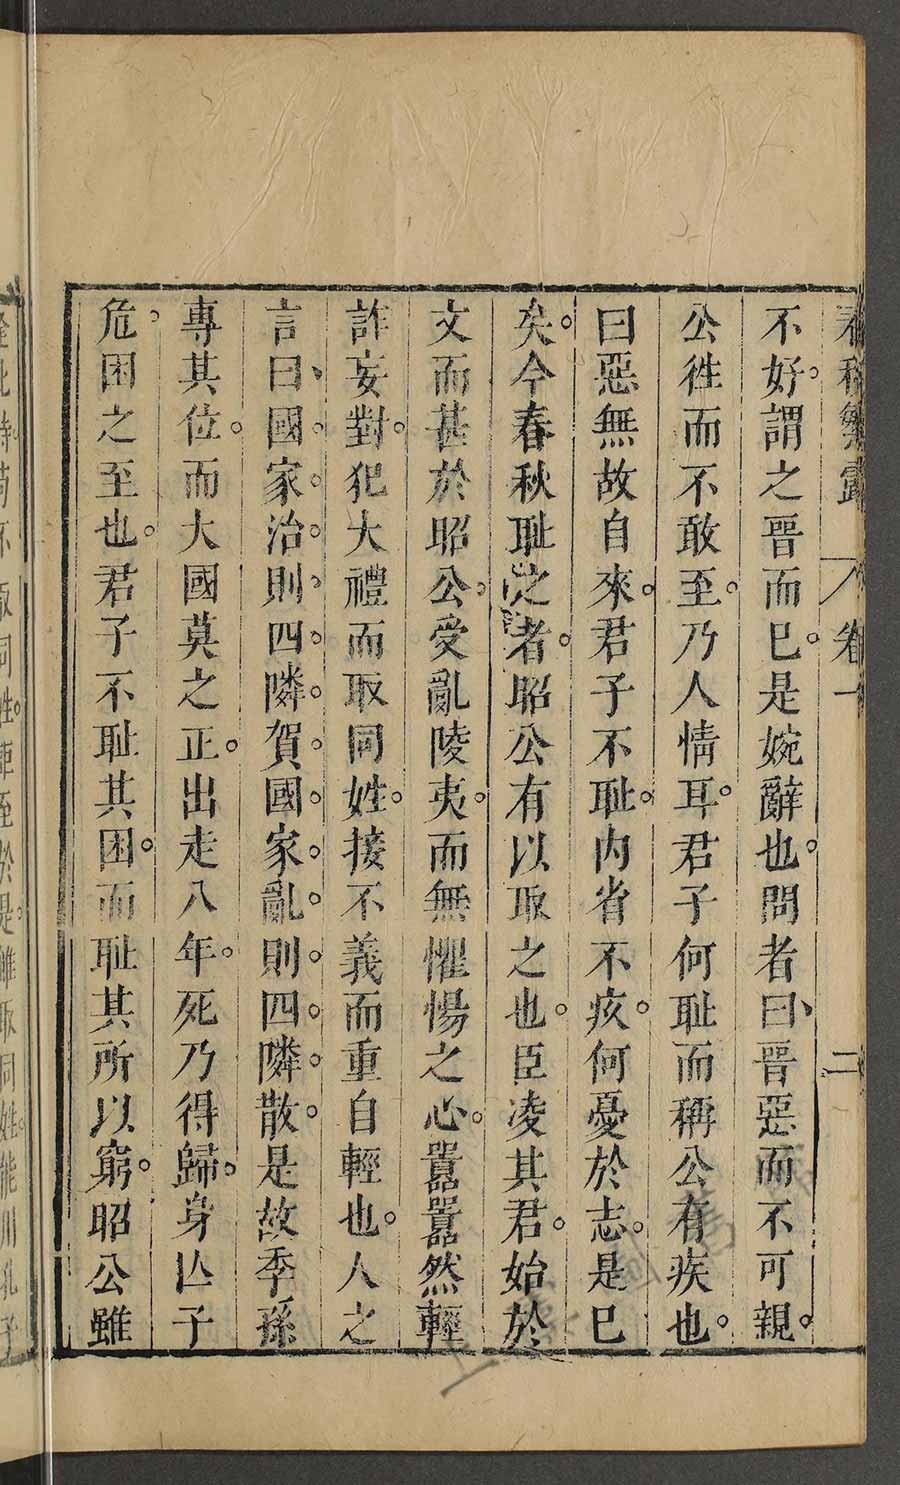 春秋繁露 卷一 二
不好。謂之晉而已。是婉辭也。問者曰、晉惡而不可親。
公徃而不敢至。乃人情耳。君子何耻而稱公有疾也。
曰惡無故自來。君子不耻。内省不疚。何憂於志。是已
矣。今春秋耻之者。昭公有以取之也。臣凌其君。始於
文而甚於昭公。受亂陵夷。而無懼惕之心。囂囂然輕
詐妄對。犯大禮而取同姓。接不義而重自輕也。人之
言曰、國家治。則四隣賀。國家亂。則四隣散。是故季孫
專其位。而大國莫之正。出走八年。死乃得歸。身亾子
危。困之至也。君子不耻其困。而耻其所以窮。昭公雖